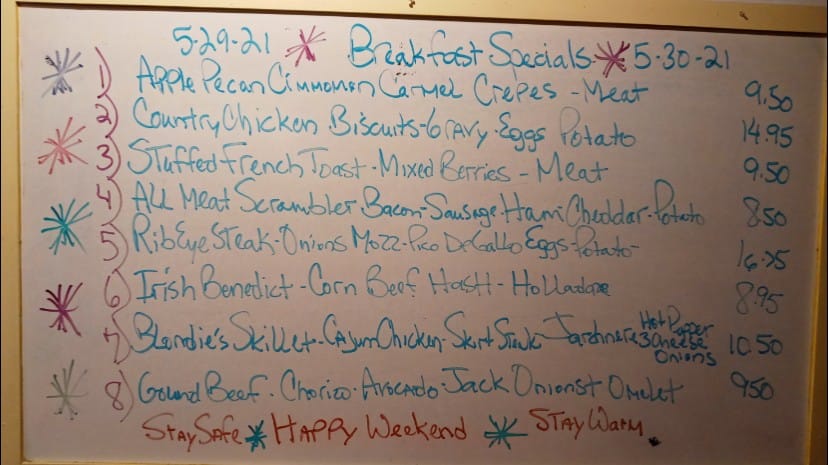 5-29-21 Breakfast Specials 5-30-21
1) Apple Pecan Cinnomon Carmel Crepes - Meat 9.50
2) Country Chicken Biscuits-Gravy-Eggs Potato 14.95
3) Stuffed French Toast-Mixed Berries - Meat 9.50
4) All Meat Scrambler Bacon-Sausage-Ham Cheddar-Potato 8.50
5) RibEye Steak-Onions Mozz-Pico De Gallo Eggs-Potato- 16.25
6) Irish Benedict-Corn Beef Hash - 8.95
7) Blondie's Skillet-Cajun Chicken-Skirt Steak Jardinere Hot Pepper 3 Cheese Onions 10.50
8) Gound Beef-Chorizo-Avocado-Jack Onionst Omelet 9.50
Stay Safe Happy Weekend Stay Warm